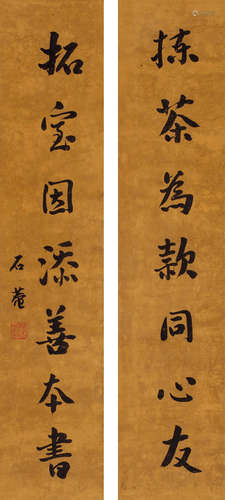 揀茶為款同心友
拓室因添善本書
石菴